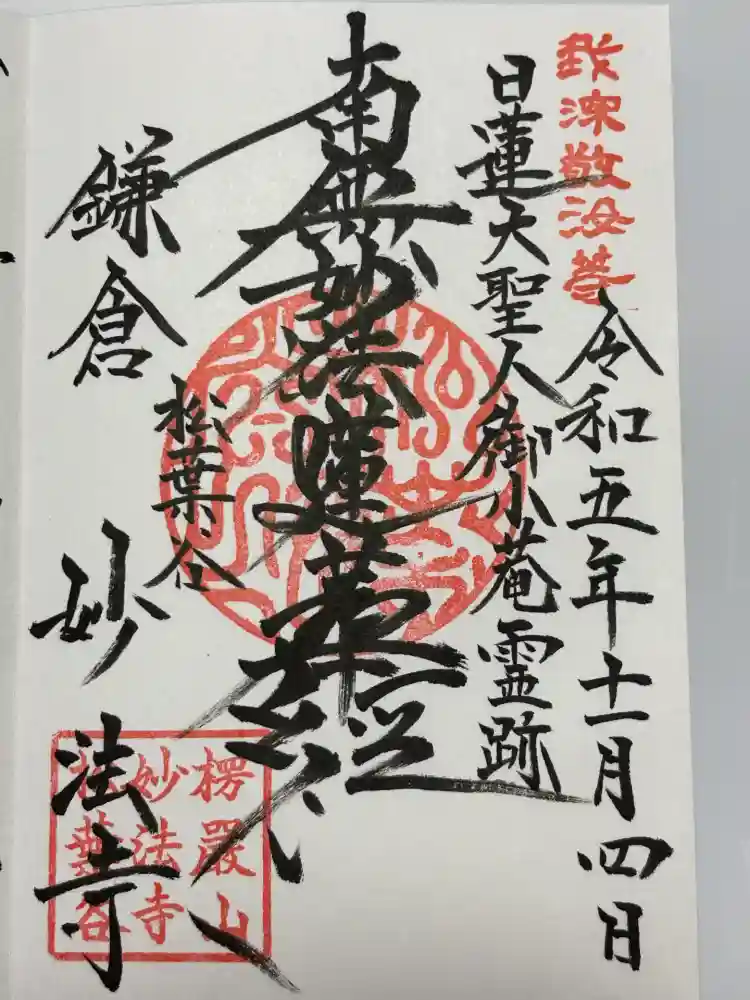 我深敬汝等
令和五年十一月四日
日蓮大聖人御小菴霊跡
南無妙法蓮華経
松葉谷
鎌倉
妙法寺
楞嚴山
妙法寺
松葉谷